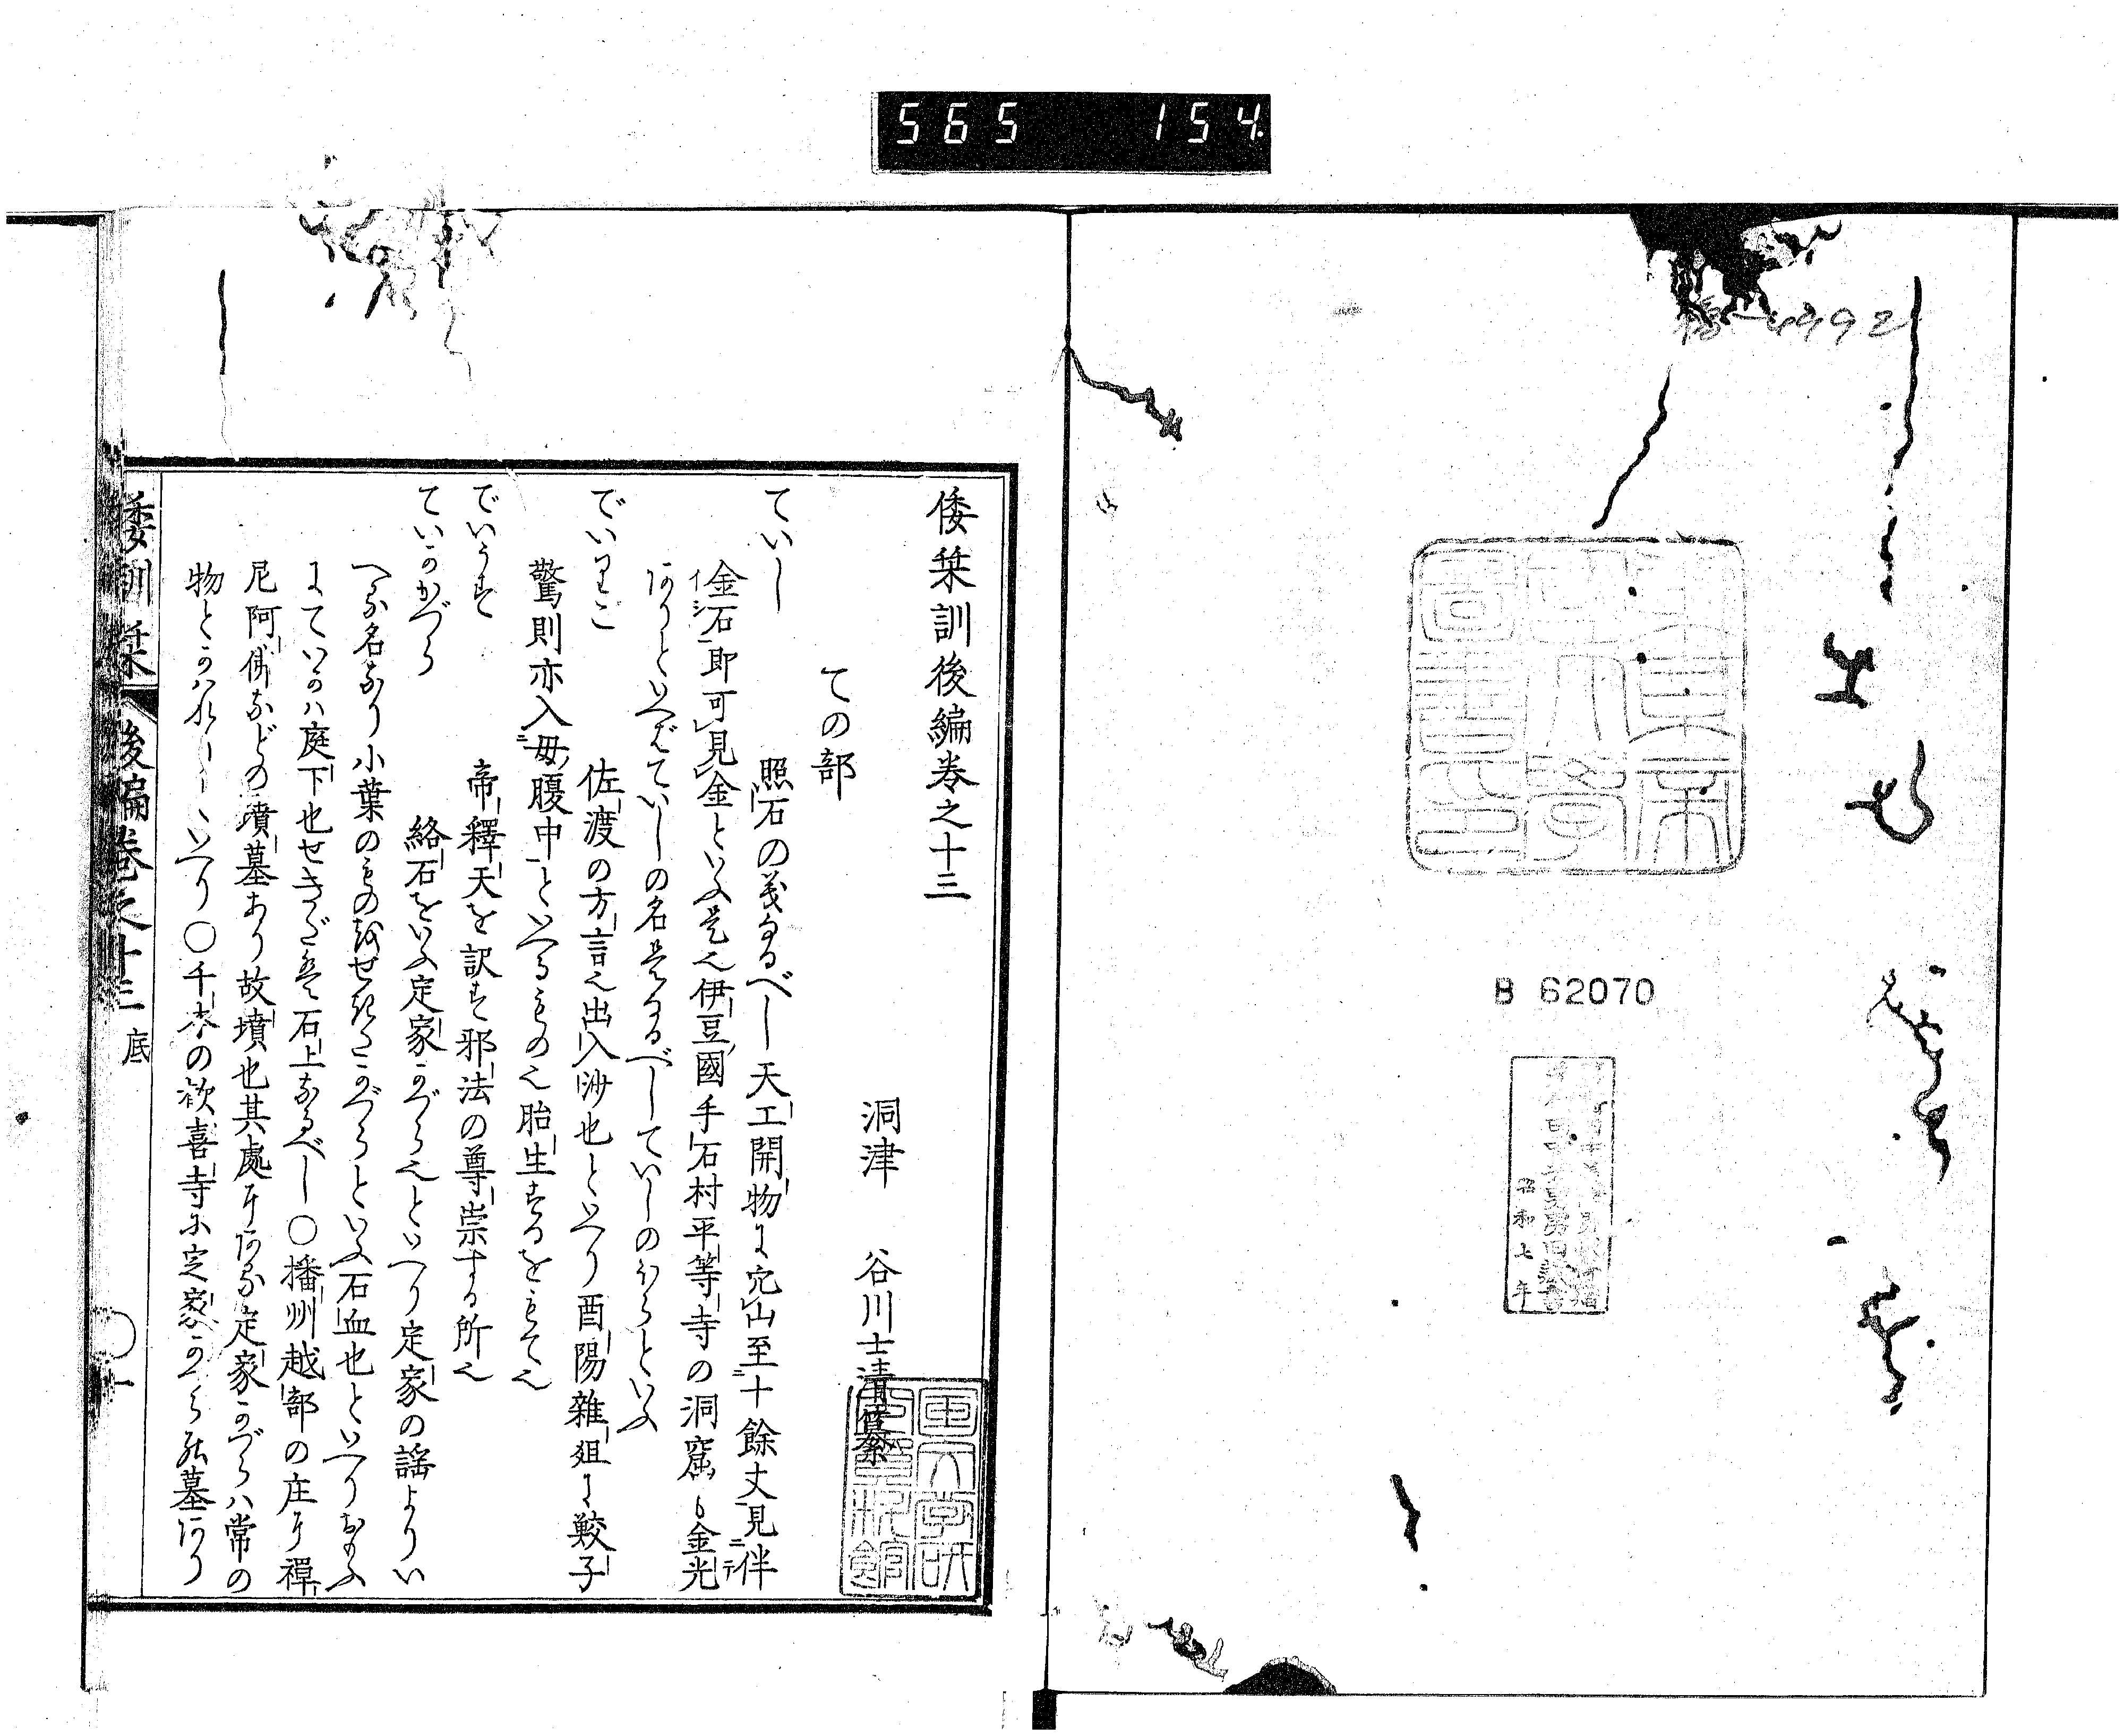 565 154
B 62070
昭和七年
倭栞訓後編巻之十三
洞津 谷川士清纂
ての部
ていし 照石の義なるべし天工開物に穴山至十餘丈見伴
金石即可見金といふ是也伊豆國手石村平等寺の洞窟も金光
ありといへばていしの名是なるべしていしのほらといふ
でいりこ 佐渡の方言也出入沙也といへり酉陽雜俎に鮫子
驚則亦入母腹中といへるもの也胎生するをもて也
でいうす 帝釋天を訳す邪法の尊崇する所也
ていかかづら 絡石をいふ定家かづら也といへり定家の謡よりい
へる名なり小葉のものをせきだかづらといふ石血也といへりおもふ
にていかハ庭下也せきだハ石上なるべし○播州越部の庄に禪
尼阿佛などの墳墓あり故墳也其處にある定家かづらハ常の
物とかハれりといへり○千本の歓喜寺に定家かつらの墓あり
倭訓栞 後編巻之十三 底 ○一